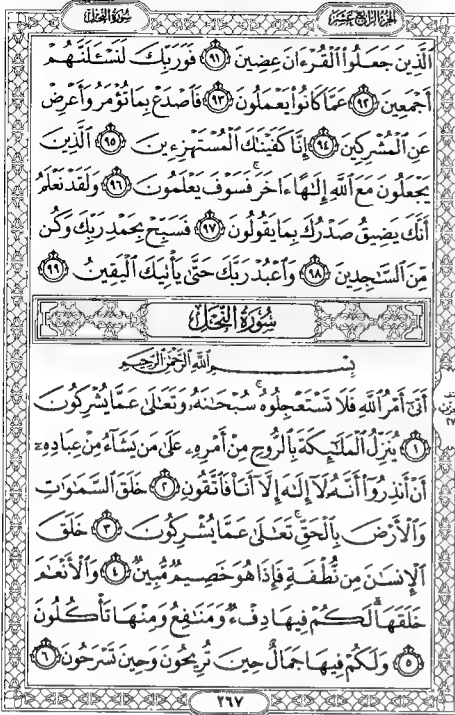 سُورَةُ النَّحْلِ
الجُزءُ الرَّابِعَ عَشَر
ٱلَّذِينَ جَعَلُوا۟ ٱلْقُرْءَانَ عِضِينَ ٩١ فَوَرَبِّكَ لَنَسْـَٔلَنَّهُمْ
أَجْمَعِينَ ٩٢ عَمَّا كَانُوا۟ يَعْمَلُونَ ٩٣ فَٱصْدَعْ بِمَا تُؤْمَرُ وَأَعْرِضْ
عَنِ ٱلْمُشْرِكِينَ ٩٤ إِنَّا كَفَيْنَٰكَ ٱلْمُسْتَهْزِءِينَ ٩٥ ٱلَّذِينَ
يَجْعَلُونَ مَعَ ٱللَّهِ إِلَٰهًا ءَاخَرَ ۚ فَسَوْفَ يَعْلَمُونَ ٩٦ وَلَقَدْ نَعْلَمُ
أَنَّكَ يَضِيقُ صَدْرُكَ بِمَا يَقُولُونَ ٩٧ فَسَبِّحْ بِحَمْدِ رَبِّكَ وَكُن
مِّنَ ٱلسَّٰجِدِينَ ٩٨ وَٱعْبُدْ رَبَّكَ حَتَّىٰ يَأْتِيَكَ ٱلْيَقِينُ ٩٩
سُورَةُ النَّحْلِ
بِسْمِ ٱللَّهِ ٱلرَّحْمَٰنِ ٱلرَّحِيمِ
أَتَىٰٓ أَمْرُ ٱللَّهِ فَلَا تَسْتَعْجِلُوهُ ۚ سُبْحَٰنَهُۥ وَتَعَٰلَىٰ عَمَّا يُشْرِكُونَ
١ يُنَزِّلُ ٱلْمَلَٰٓئِكَةَ بِٱلرُّوحِ مِنْ أَمْرِهِۦ عَلَىٰ مَن يَشَآءُ مِنْ عِبَادِهِۦٓ
أَنْ أَنذِرُوٓا۟ أَنَّهُۥ لَآ إِلَٰهَ إِلَّآ أَنَا۠ فَٱتَّقُونِ ٢ خَلَقَ ٱلسَّمَٰوَٰتِ
وَٱلْأَرْضَ بِٱلْحَقِّ ۚ تَعَٰلَىٰ عَمَّا يُشْرِكُونَ ٣ خَلَقَ
ٱلْإِنسَٰنَ مِن نُّطْفَةٍ فَإِذَا هُوَ خَصِيمٌ مُّبِينٌ ٤ وَٱلْأَنْعَٰمَ
خَلَقَهَا ۗ لَكُمْ فِيهَا دِفْءٌ وَمَنَٰفِعُ وَمِنْهَا تَأْكُلُونَ
٥ وَلَكُمْ فِيهَا جَمَالٌ حِينَ تُرِيحُونَ وَحِينَ تَسْرَحُونَ ٦
٢٦٧